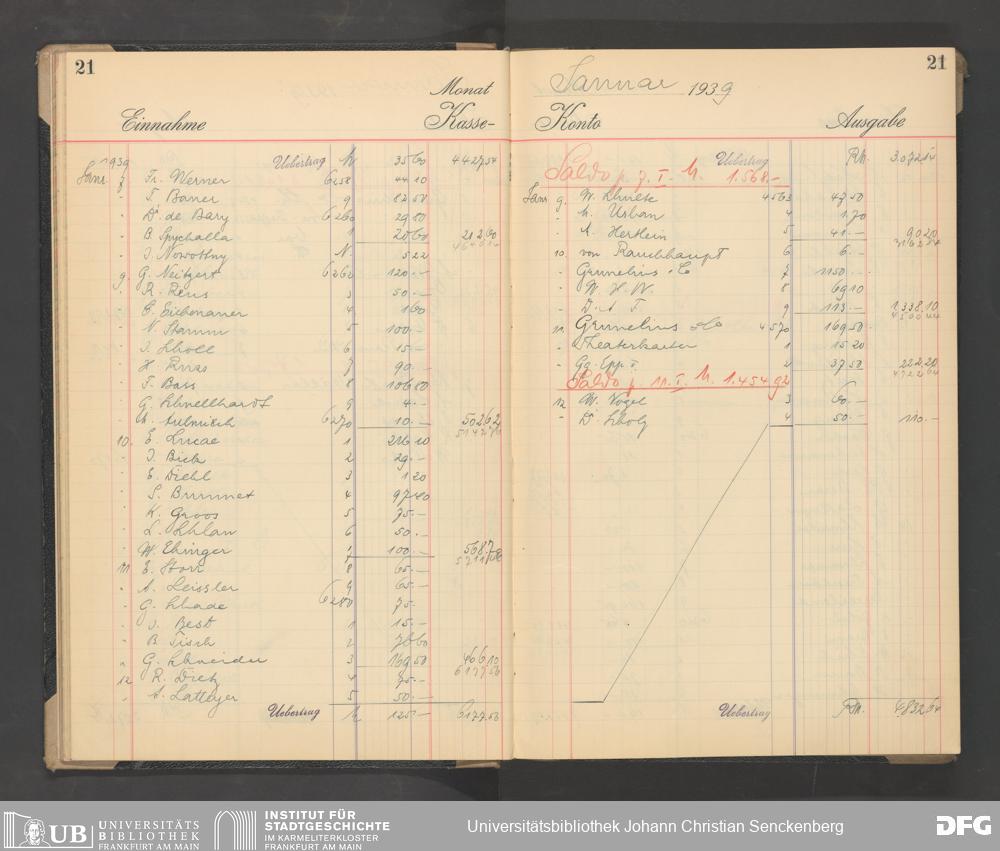 21
Monat
Einnahme Kasse-
1939 Uebertrag 35 60 4 427 54
Jan. 7 Fr. Werner 6258 44 10
" F. Bauer 9 82 50
" Dr. de Bary 6260 29 80
" B. Spychalla 1 20 60 212 60
" J. Nowottny N. 5 22
9 G. Neitzert 6262 120 –
" R. Rens 3 50 –
4 1 60
" N. Stamm 5 100 –
" J. Scholl 6 15 –
7 90 –
" F. Bass 8 106 80
" G. Schnellhardt 9 4 –
6270 10 – 502 62
10. E. Lucae 1 216 10
" J. Bick 2 29 –
" E. Diehl 3 1 20
4 97 40
" K. Groos 5 75 –
" L. Schlam 6 50 –
" W. Ehinger 7 100 –
11 E. Storr 8 65 –
" A. Leissler 9 65 –
" G. Schade 6280 75 –
" J. Best 1 15 –
" B. Tisch 2
" G. Schneider 3 169 50 466 10
12 R. Dietz 4 75 –
5 50 –
Uebertrag 125 – 6177 56
21
Januar 1939
Konto Ausgabe
Uebertrag RM. 3.072 14
Saldo p. 7. I. M. 1.568.–
Jan 9. W. Schulte 4563 47 50
" M. Urban 4 1.70
" A. Hertlein 5 41 – 90 20
10. von Rauchhaupt 6 6 –
" Grunelius & Co 7 1150 –
" W. H. W. 8 69 10
" D. A F. 9 113 – 1.338 10
11 Grunelius & Co 4570 169 50
" Theaterkarten 1 15 20
" Gg. Epp 2 37 50 222 20
Saldo p. 11. I. M. 1.454 92
12 W. Vogel 3 60 –
" Dr. Scholz 4 50 – 110 –
Uebertrag RM. 4.832 64
UB UNIVERSITÄTS
BIBLIOTHEK
FRANKFURT AM MAIN
INSTITUT FÜR
STADTGESCHICHTE
IM KARMELITERKLOSTER
FRANKFURT AM MAIN
Universitätsbibliothek Johann Christian Senckenberg
DFG